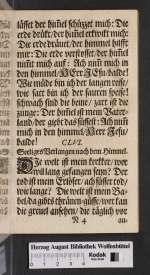 läſſet der him̃el ſchützet mich: Die
erde drükt/ der him̃el erkwikt mich:
Die erde dräuet/ der himmel hofft
mir: Die erde verſtoſſet/ der him̃el
nim̃t mich auf: Ach nim̃ mich in
den himmel/ HErr JEſu/ balde!
Wie müde bin ich der langen reiſe/
wie ſatt bin ich der ſauren ſpeiſe!
ſchwach ſind die beine/ zart iſt die
zunge: Der him̃el iſt mein Vater-
land/ der gibt das füſſeſt: Ach nim̃
mich in den himmel/ HErr Jeſu/
balde!
CLVI.
Gottliges Verlangen nach dem Himmel.
DIe welt iſt mein kerkker/ wer
wil lang gefangen ſeyn? Der
tod iſt mein Erlöſer/ ach ſäſſet der
wie lange? Die welt iſt mein Ba-
bel/ da gibts thränen-güſſe/ wer kan
die greuel anſehen/ die täglich vor
N 4
Herzog August Bibliothek Wolfenbüttel